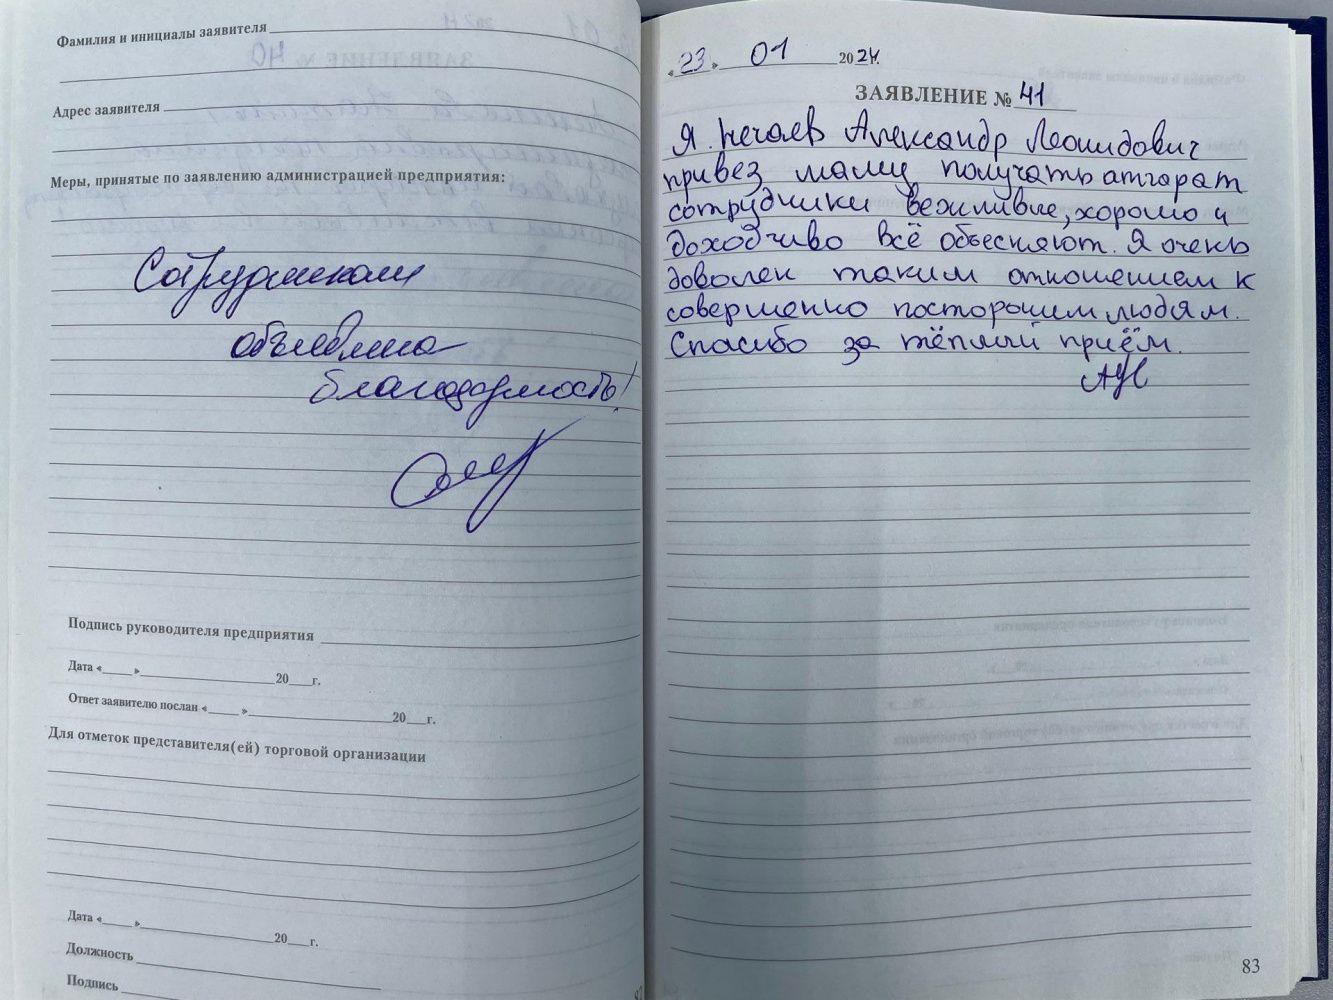 Фамилия и инициалы заявителя
Адрес заявителя
Меры, принятые по заявлению администрацией предприятия:
Сотрудникам
объявлена
благодарность!
Подпись руководителя предприятия
Дата «____»____20___г.
Ответ заявителю послан «____»____20___г.
Для отметок представителя(ей) торговой организации
Дата «____»____20___г.
Должность
Подпись
«23» 01 2024г.
ЗАЯВЛЕНИЕ № 41
Я Нечаев Александр Леонидович
привёз маму получать аппарат
сотрудники вежливые, хорошо и
доходчиво всё объесняют. Я очень
доволен таким отношением к
совершенно посторонним людям.
Спасибо за тёплый приём.
83